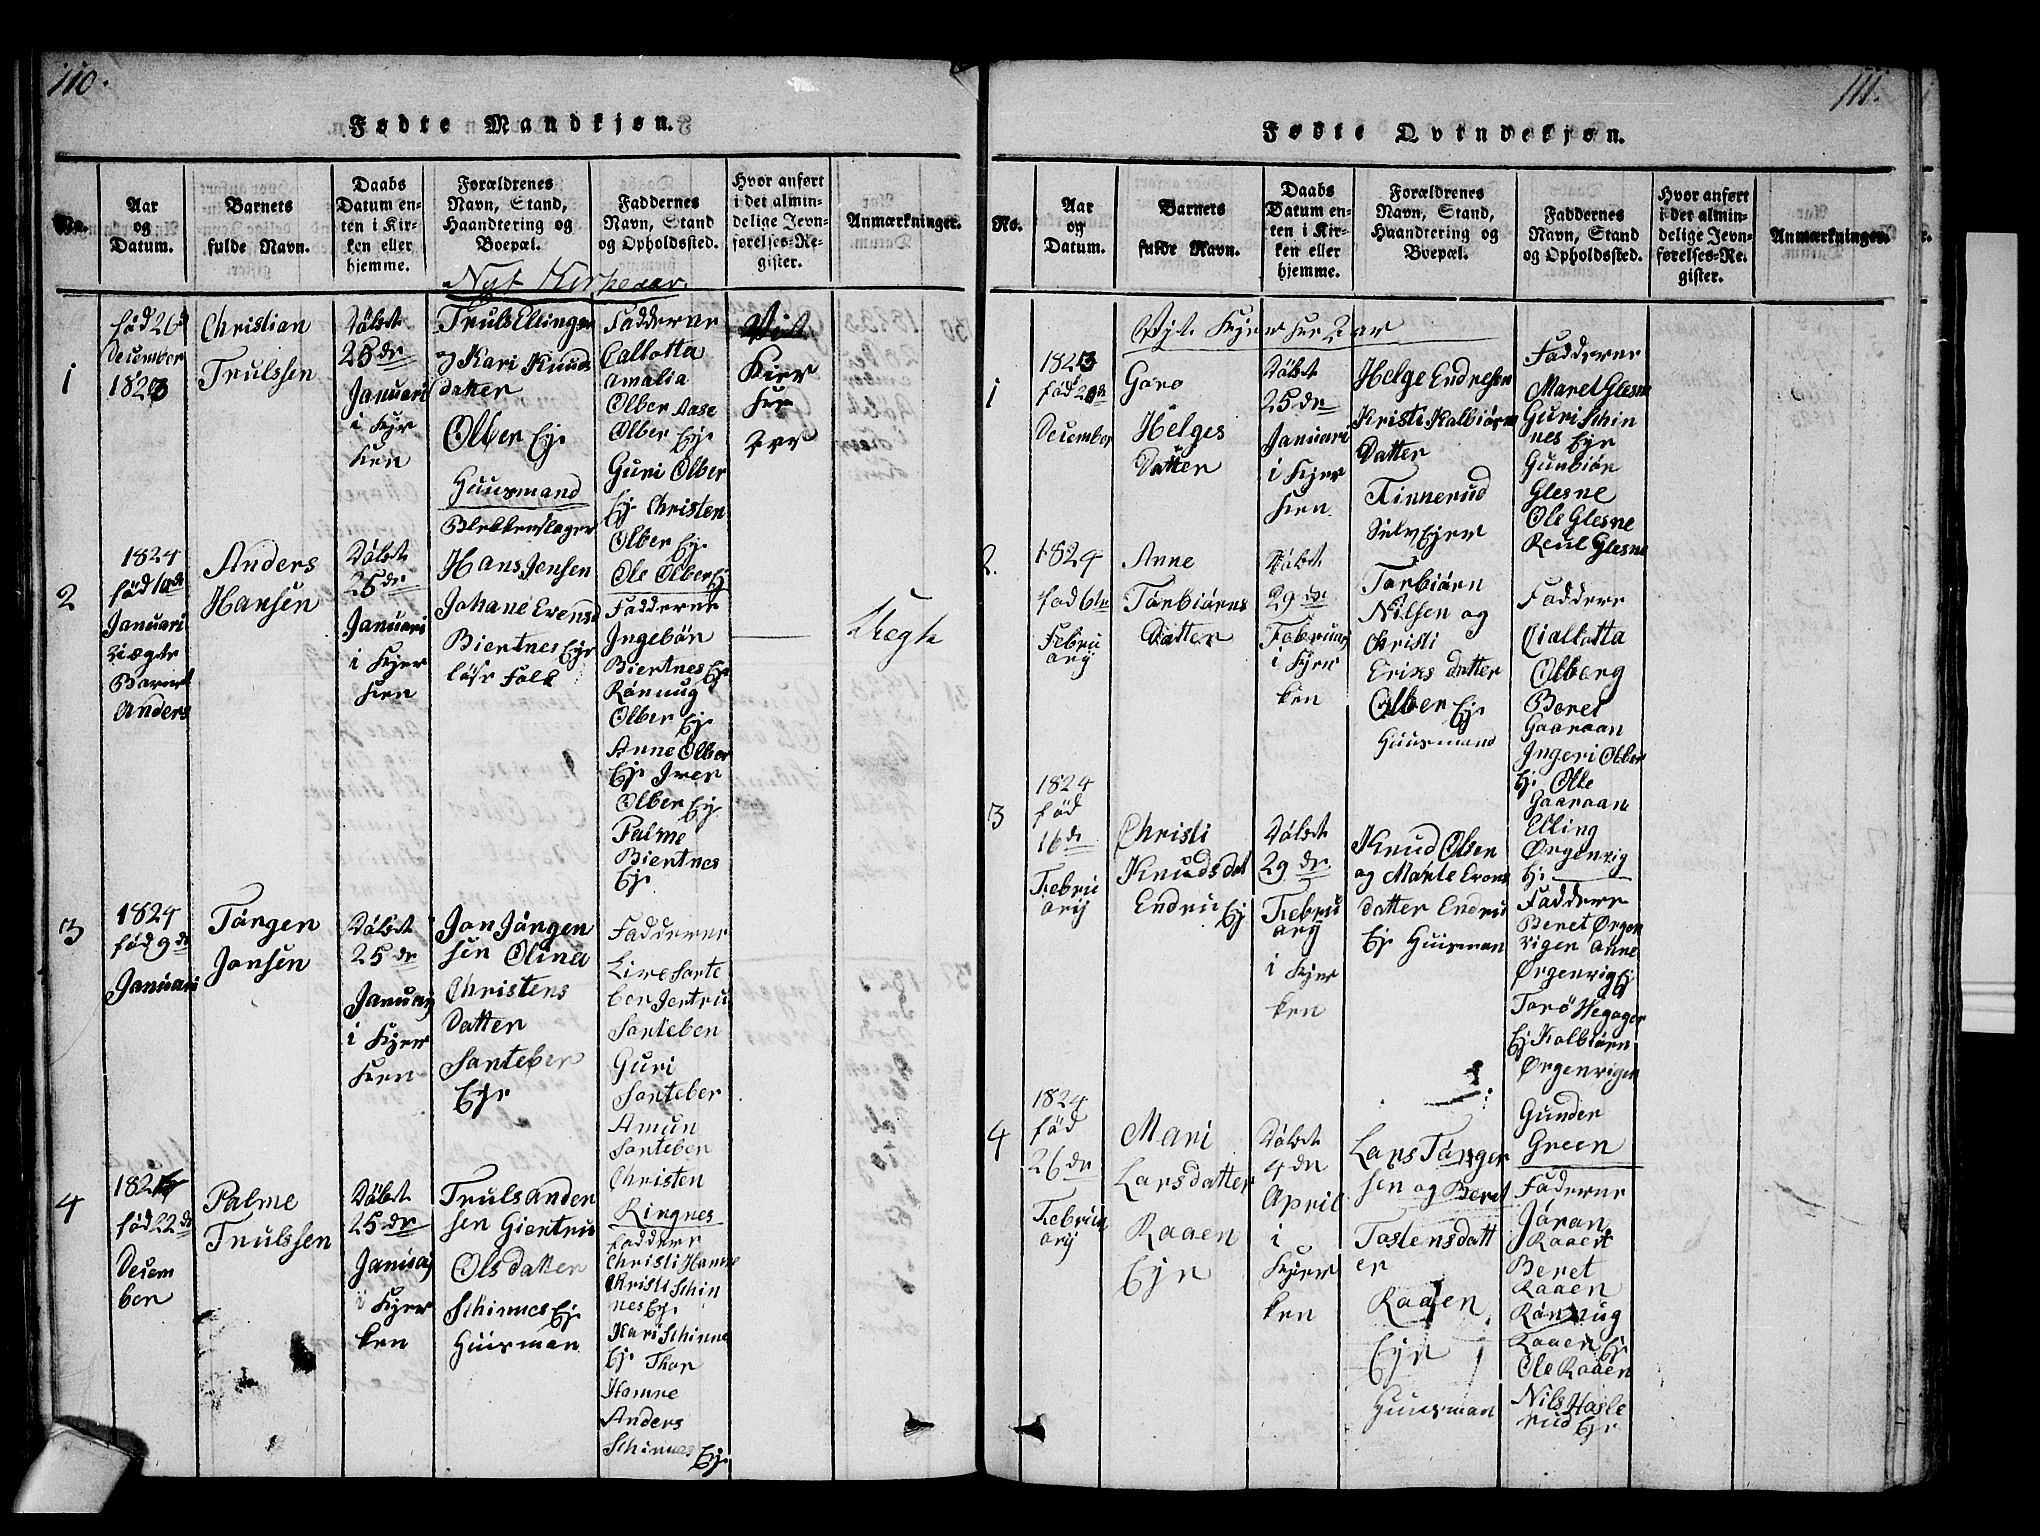 110.
Fødte Mandkjøn.
No.
Aar
og
Datum.
Barnets
fulde Navn.
Daabs
Datum en-
ten i Kir-
ken eller
hjemme.
Forældrenes
Navn, Stand,
Haandtering og
Boepæl.
Faddernes
Navn, Stand
og Opholdssted.
Hvor anført
i det almin-
delige Jevn-
førelses-Re-
gister.
Anmærkninger.
Nyt Kirkeaar
1
fød 20d
December
1823
Christian
Trulssen
Døbt
25 de
Januari
i Kjer
ken
Truls Ellingse
Kari Knuds
datter
Olber Eje
Huusmand
Fadderne
Callotta
Amalia
Olber Aase
Olber Eje
Guri Olber
Eje Christen
Olber Eje
Ole Olber Ej
Kier
2
1824
fød 10de
Januari
Barnet
Anders
Anders
Hansen
Døbt
25 de
Januari
i Kjer
ken
Hans Jensen
Johane Evensd
Biertnes Eje
løse Folk
Fadderne
Ingebør
Biertnes Eje
Rønnug
Olber Eje
Anne Olber
Eje Iver
Olber Ej
Palme
Biertnes
Eje
Uegte
3
1824
fød 9 de
Januari
Jørgen
Jonsen
Døbt
25 de
Januarj
i Kjer
ken
Jon Jørgen
sen Olina
Christens
datter
Santeber
Eje
Fadderne
Live Sante
ber Jertru
Santeber
Guri
Santeber
Amun
Santeber
Christen
Ringnes
4
fød 22 de
Decem
ber
Palme
Trulssen
Døbt
25 de
Januaj
i Kjer
ken
Truls Anden
sen Giertru
Olsdatter
Schinnes Eje
Huusman
Fadderne
Christi Hamne
Christi Schin
nes Eje
Kari Schinne
Eje Thor
Hamne
Anders
Schinnes Eje
111.
Fødte Qvindekjøn.
No.
Aar
og
Datum.
Barnets
fulde Navn.
Daabs
Datum en-
ten i Kir-
ken eller
hjemme.
Forældrenes
Navn, Stand,
Haandtering og
Boepæl.
Faddernes
Navn, Stand
og Opholdssted.
Hvor anført
i det almin-
delige Jevn-
førelses-Re-
gister.
Anmærkninger.
1
1823
fød 20de
December
Goro
Helges
Datter
Døbt
25 de
Januari
i Kjer
ken
Helge Endresen
Kristi Kalbiørn
Datter
Finnerud
Selv Ejer
Fadderne
Maret Glesne
Guri Schin
nes Eje
Gunbiør
Glesne
Ole Glesne
Glesne
2.
1824
fød 6te
Febru
arij
Anne
Torbiørns
Datter
Døbt
29 de
Februarj
i Kjer
ken
Torbiørn
Nilsen og
Christi
Eriks datter
Olber Eje
Huusmand
Faddere
Olberg
Beret
Gaaraan
Ingeri Olber
Ej Olle
Gaaraan
Elling
Ørgenvig
Ej
3
1824
fød
16 de
Febru
arij
Christi
Knuds dat
Endru Ej
Døbt
29 de
Febru
arij
i Kjer
ken
Knud Olsen
og Marte Evens
datter Endru
Eje Huusman
Faddere
Beret Ørgen
vigen Anne
Ørgenvig Ej
Torø Hegager
Ej Kolbiørn
Ørgenvigen
Gunder
Green
4
1824
fød
26 de
Febru
arij
Mari
Larsdatter
Raaen
Eje
Døbt
4 de
April
i
Kjer
ken
Lars Tørger
sen og Beret
Tostensdatt
er
Raaen
Eje
Huusman
Faderne
Jøran
Raaen
Beret
Raaen
Rønnug
Raaen Eje
Ole Raaen
Nils Hasle
rud Eje